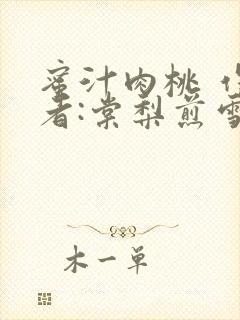 蜜汁肉桃 作
者:棠梨煎雪
木一单